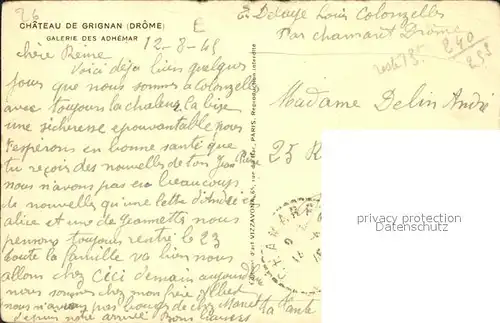 26
CHÂTEAU DE GRIGNAN (DRÔME)
GALERIE DES ADHÉMAR
E
12-8-45
chère Reine
Voici déja bien quelques
jours que nous sommes a Colonzelle
avec toujours la chaleur la bize
une sécheresse epouvantable nous
t'esperons en bonne santé que
tu reçois des nouvelles de ton Jean
nous n'avons pas eu beaucoup
de nouvelles qu'une lettre d'André et
alice et une de Jeannette nous
pensons toujours rentré le 23
toute la famille va bien nous
allons chez Céci demain aujourdhui
nous sommes chez mon frère Albert
nous n'avons pas bougé de chez Marcel
depuis notre arrivée Bons baisers
la Tante
VIZZAVONA, 65, rue du Bac, PARIS. Reproduction interdite
E. Delaye Louis Colonzelles
Par chamaret Drôme
240
255
Madame Delin André
25 R
privacy protection
CHAMARET